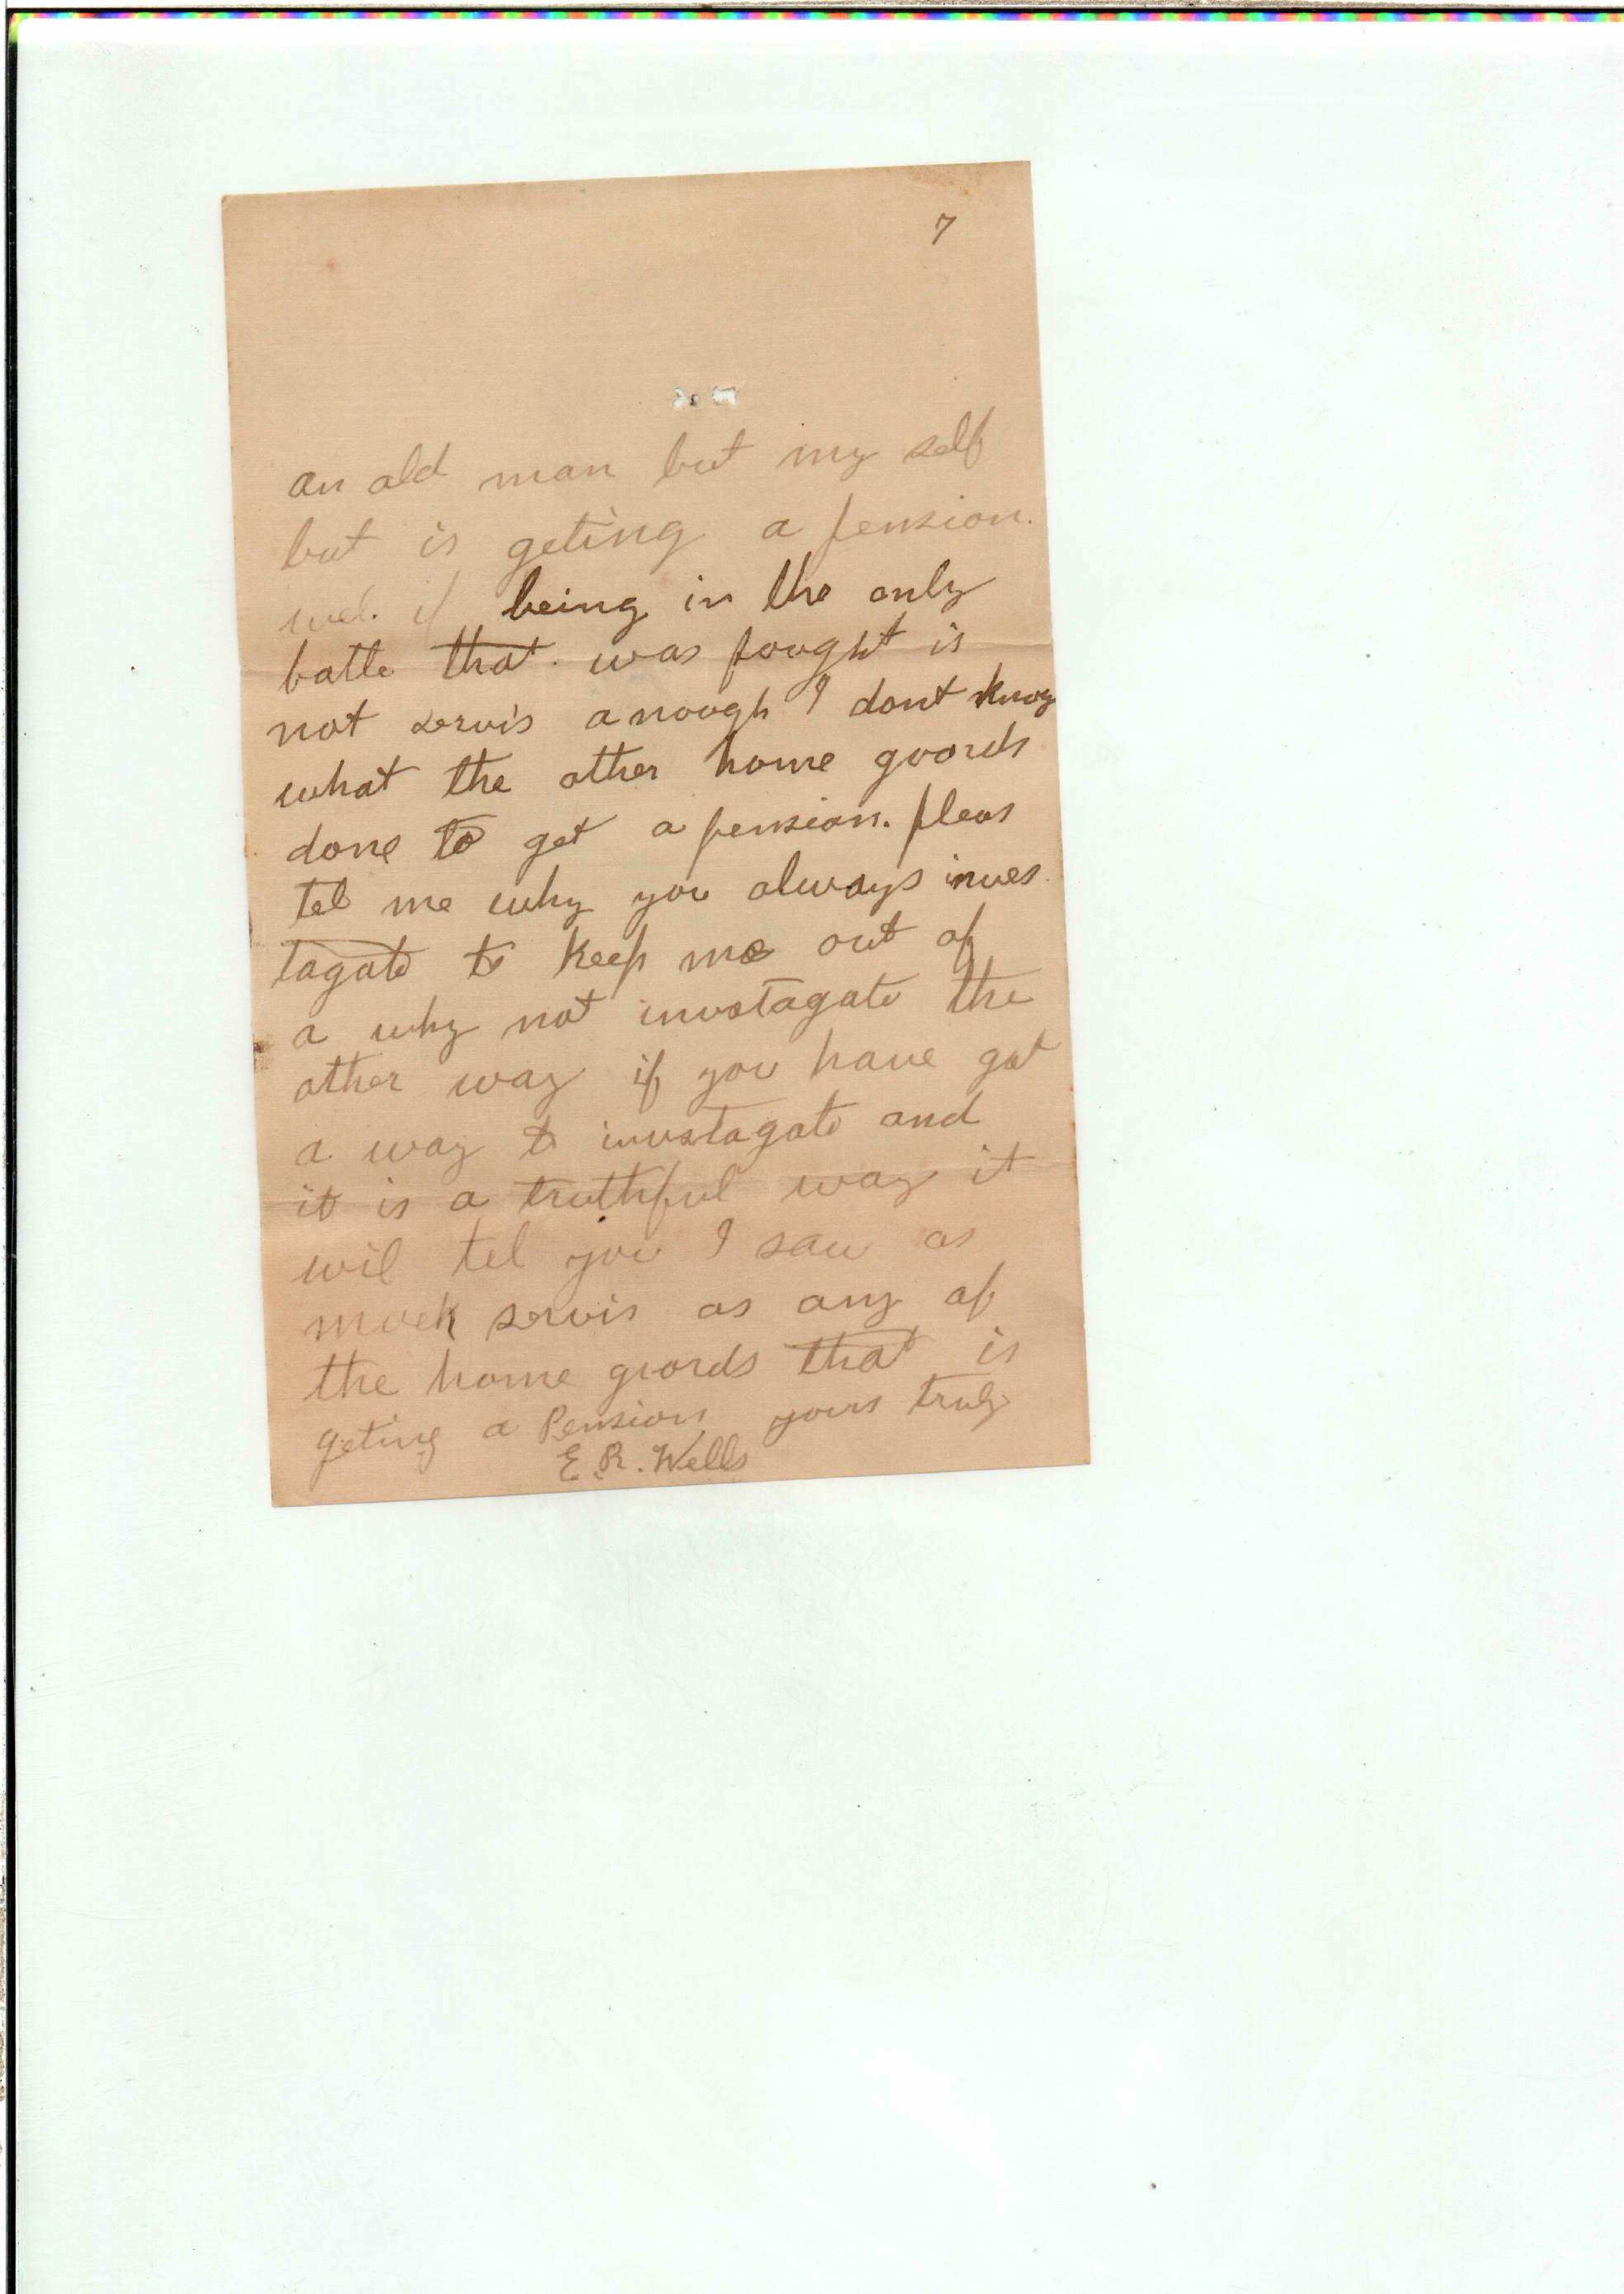 7
an old man but my self
but is geting a pension.
wel. if being in the only
batle that was fought is
not servis anough I dont know
what the other home guords
done to get a pension. pleas
tel me why you always inves
tagate to keep me out of
a why not invstagate the
other way if you have got
a way to invstagate and
it is a truthful way it
wil tel you I saw as
much servis as any of
the home guords that is
geting a Pension yours truly
E.R. Wells